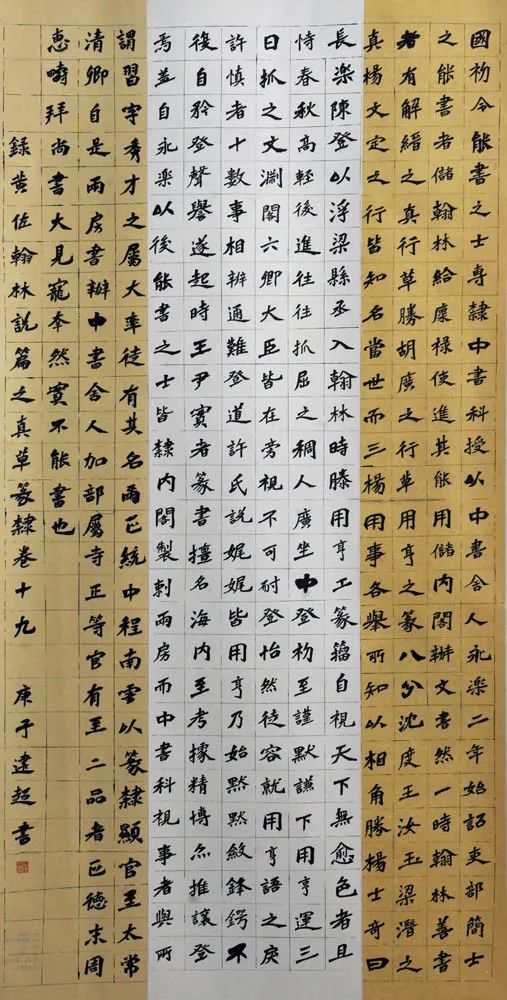 國初令能書之士專隸中書科授以中書舍人永樂二年始詔吏部簡士
之能書者儲翰林給廩祿使進其能用儲內閣辦文書然一時翰林善書
者有解縉之真行草勝胡廣之行草用亨之篆八分沈度王汝玉梁潛之
真楊文定之行皆知名當世而三楊用事各舉所知以相角勝楊士奇曰
長樂陳登以浮梁縣丞入翰林時滕用亨工篆籀自視天下無愈色者且
恃春秋高輕後進往往抓屈之稠人廣坐中登初至謹默謙下用亨運三
日抓之文淵閣六卿大臣皆在旁視不可耐登怡然從容就用亨語之
許慎者十數事相辨通難登道許氏說娓娓皆用亨乃始默默斂鋒鍔不
復自矜登聲譽遂起時王尹實者篆書擅名海內至考據精博亦推讓登
焉蓋自永樂以後能書之士皆隸內閣製剌兩房而中書科視事者與所
謂習字秀才之屬大率徒有其名而正統中程南雲以篆隸顯官至太常
清卿自是兩房書辦中書舍人加部屬寺正等官有至二品者正德末周
惠疇拜尚書大見寵奉然實不能書也
錄黃佐翰林說篇之真草篆隸卷十九 庚子建超書